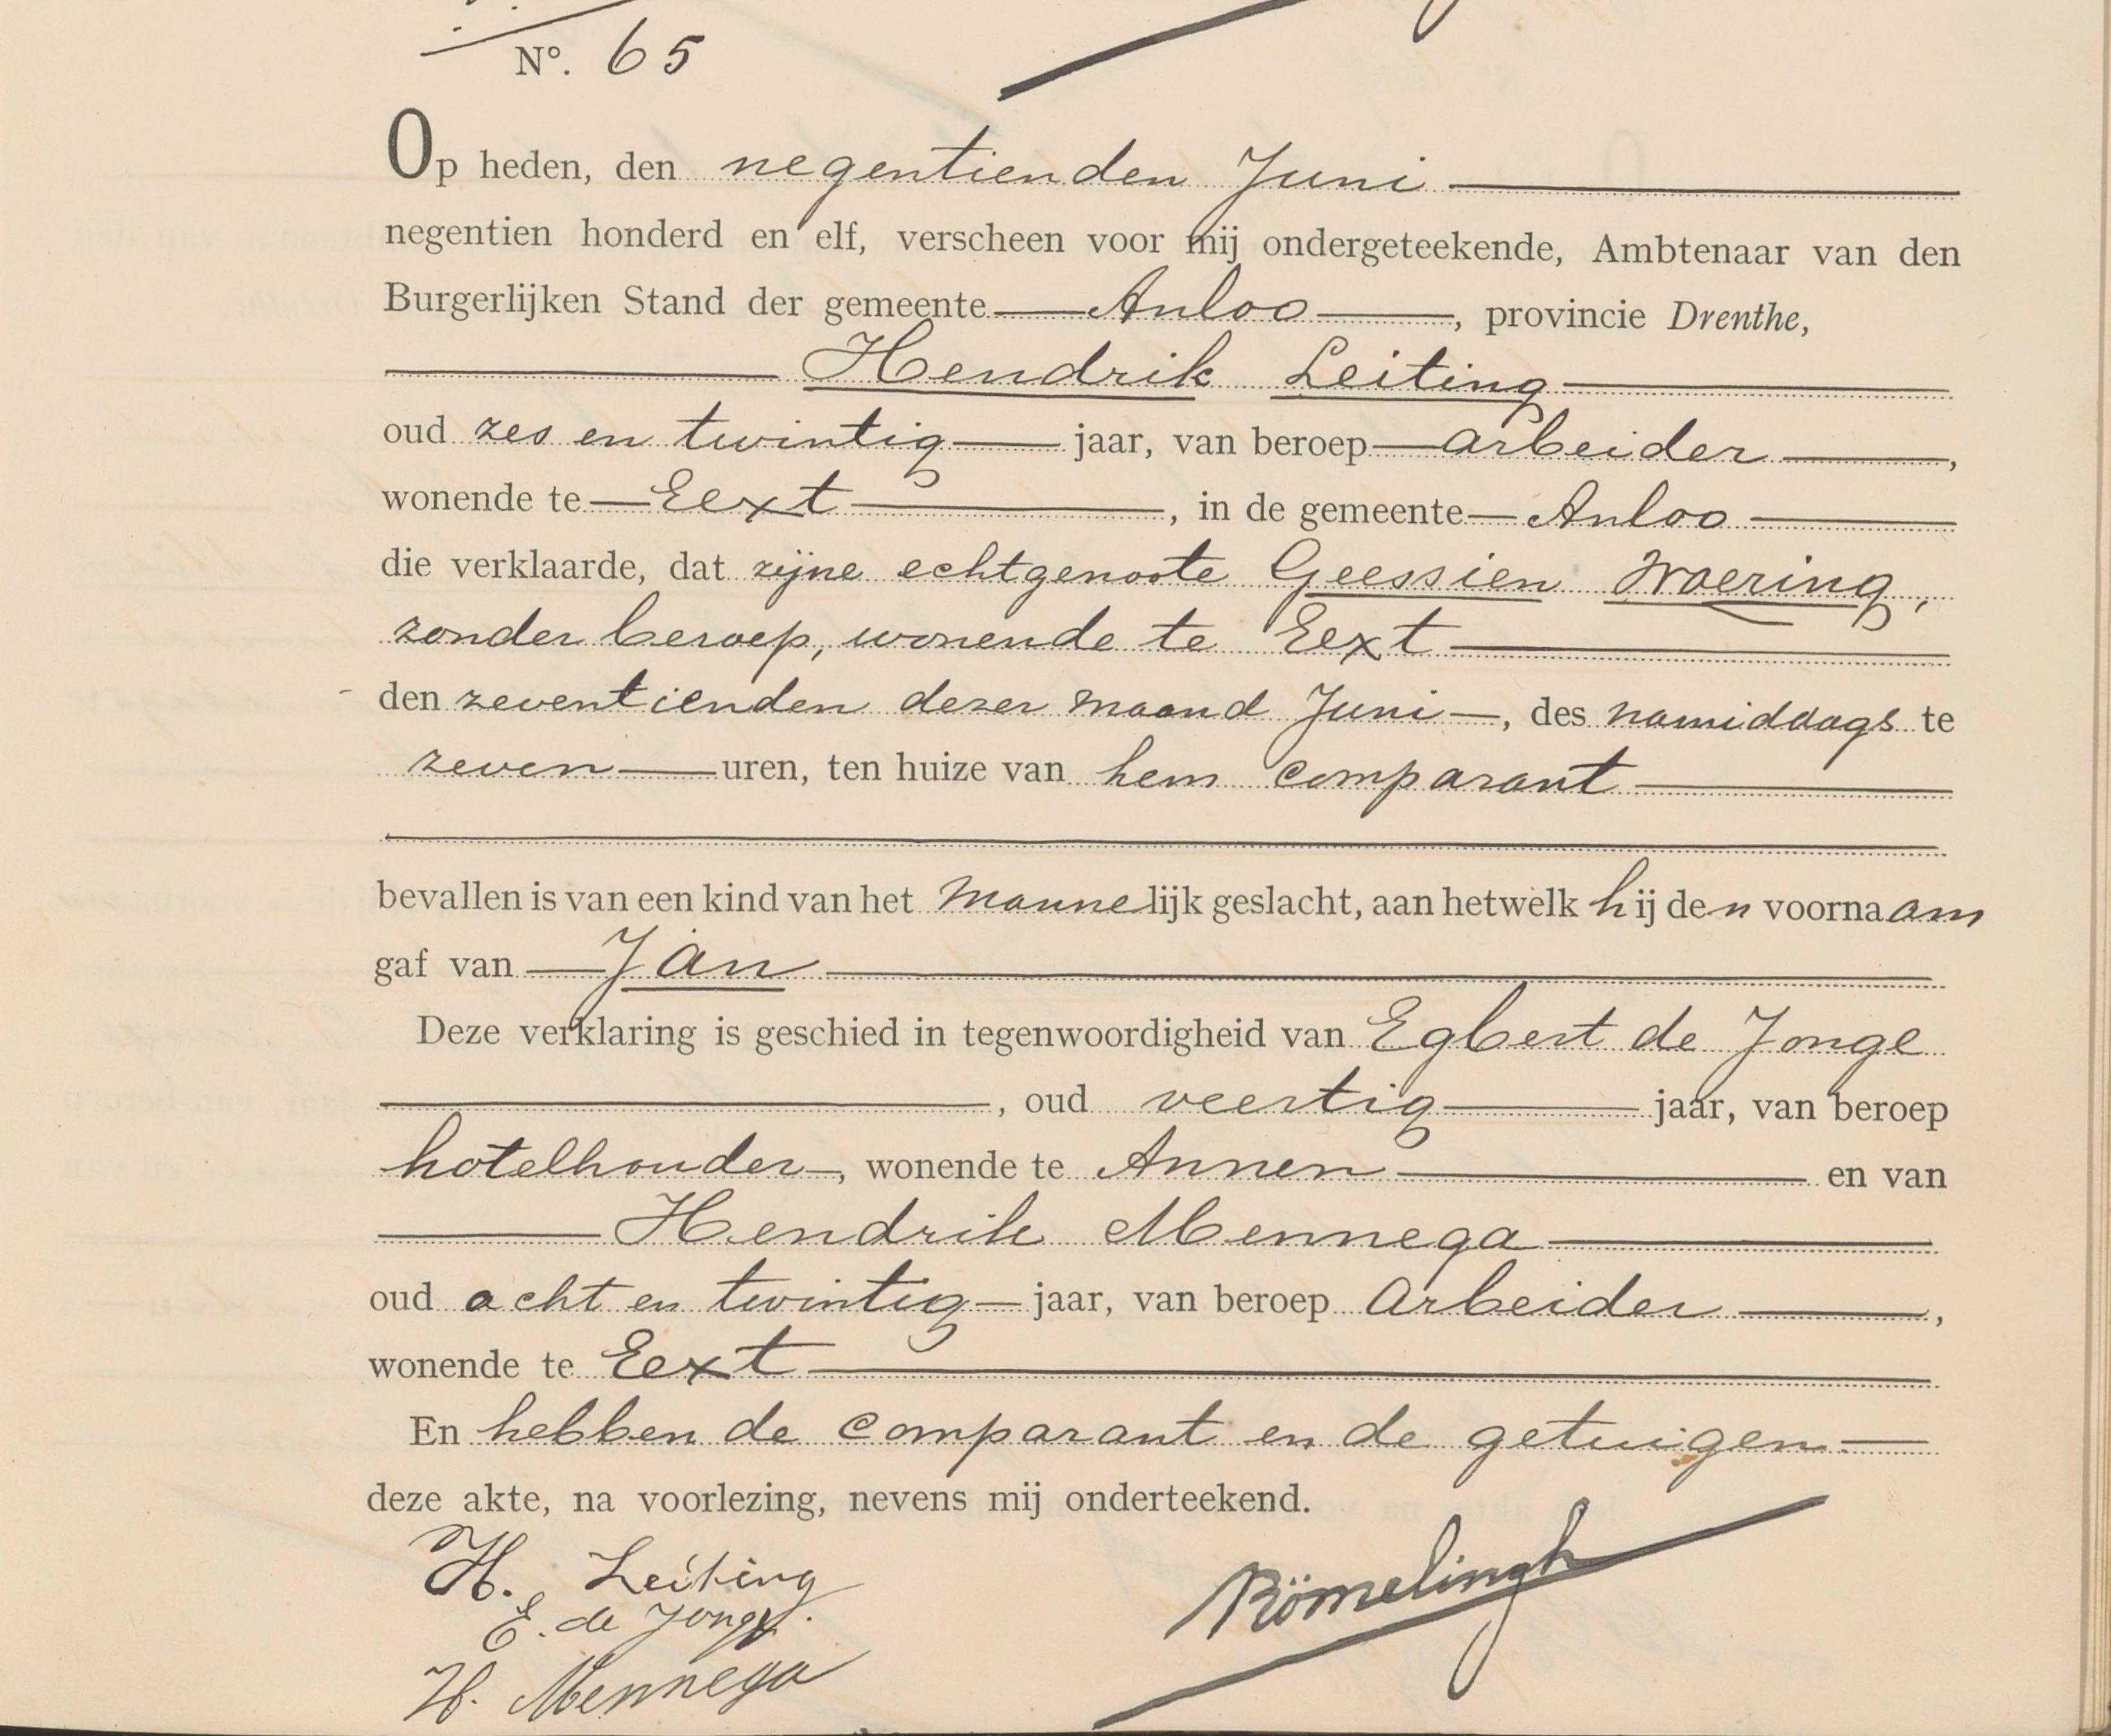 N°. 65
Op heden, den negentienden Juni
negentien honderd en elf, verscheen voor mij ondergeteekende, Ambtenaar van den
Burgerlijken Stand der gemeente Anloo, provincie Drenthe,
Hendrik Leiting
oud zes en twintig jaar, van beroep arbeider,
wonende te Eext, in de gemeente Anloo
die verklaarde, dat zijne echtgenoote Geessien Woering,
zonder beroep, wonende te Eext
den zeventienden dezer maand Juni, des namiddags te
zeven uren, ten huize van hem comparant
bevallen is van een kind van het mannelijk geslacht, aan hetwelk hij den voornaam
gaf van Jan
Deze verklaring is geschied in tegenwoordigheid van Egbert de Jonge
, oud veertig jaar, van beroep
hotelhouder, wonende te Annen en van
Hendrik Mennega
oud acht en twintig jaar, van beroep arbeider,
wonende te Eext
En hebben de comparant en de getuigen
deze akte, na voorlezing, nevens mij onderteekend.
H. Leiting
E. de Jonge.
H. Mennega
Römelingh